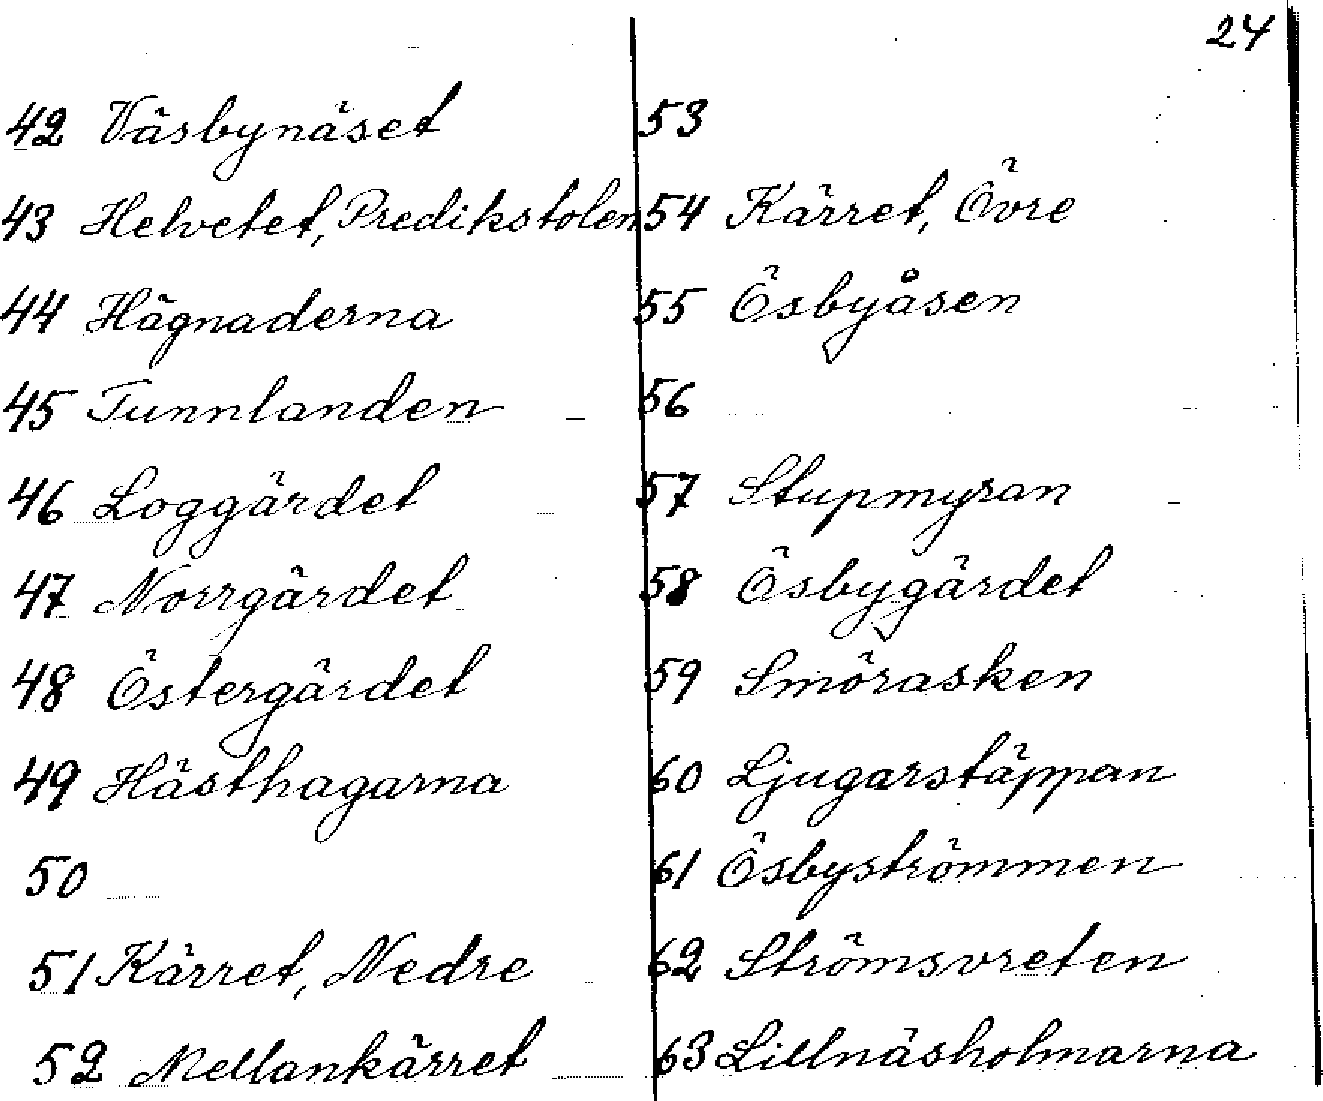 24
42 Väsbynäset
43 Helvetet, Predikstolen
44 Hägnaderna
45 Tunnlanden
46 Loggärdet
47 Norrgärdet
48 Östergärdet
49 Hästhagarna
50
51 Kärret, Nedre
52 Mellankärret
53
54 Kärret, Övre
55 Ösbyåsen
56
57 Stupmyran
58 Ösbygärdet
59 Smörasken
60 Ljugarstäppan
61 Ösbyströmmen
62 Strömsvreten
63 Lillnäsholmarna